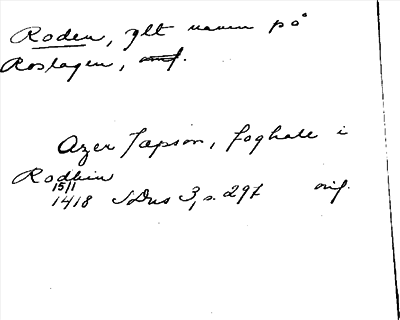 Roden, glt namn på
Roslagen,
Azer Japson, foghate i
Rodhin
15/1
1418 SDns 3, s. 297 orig.